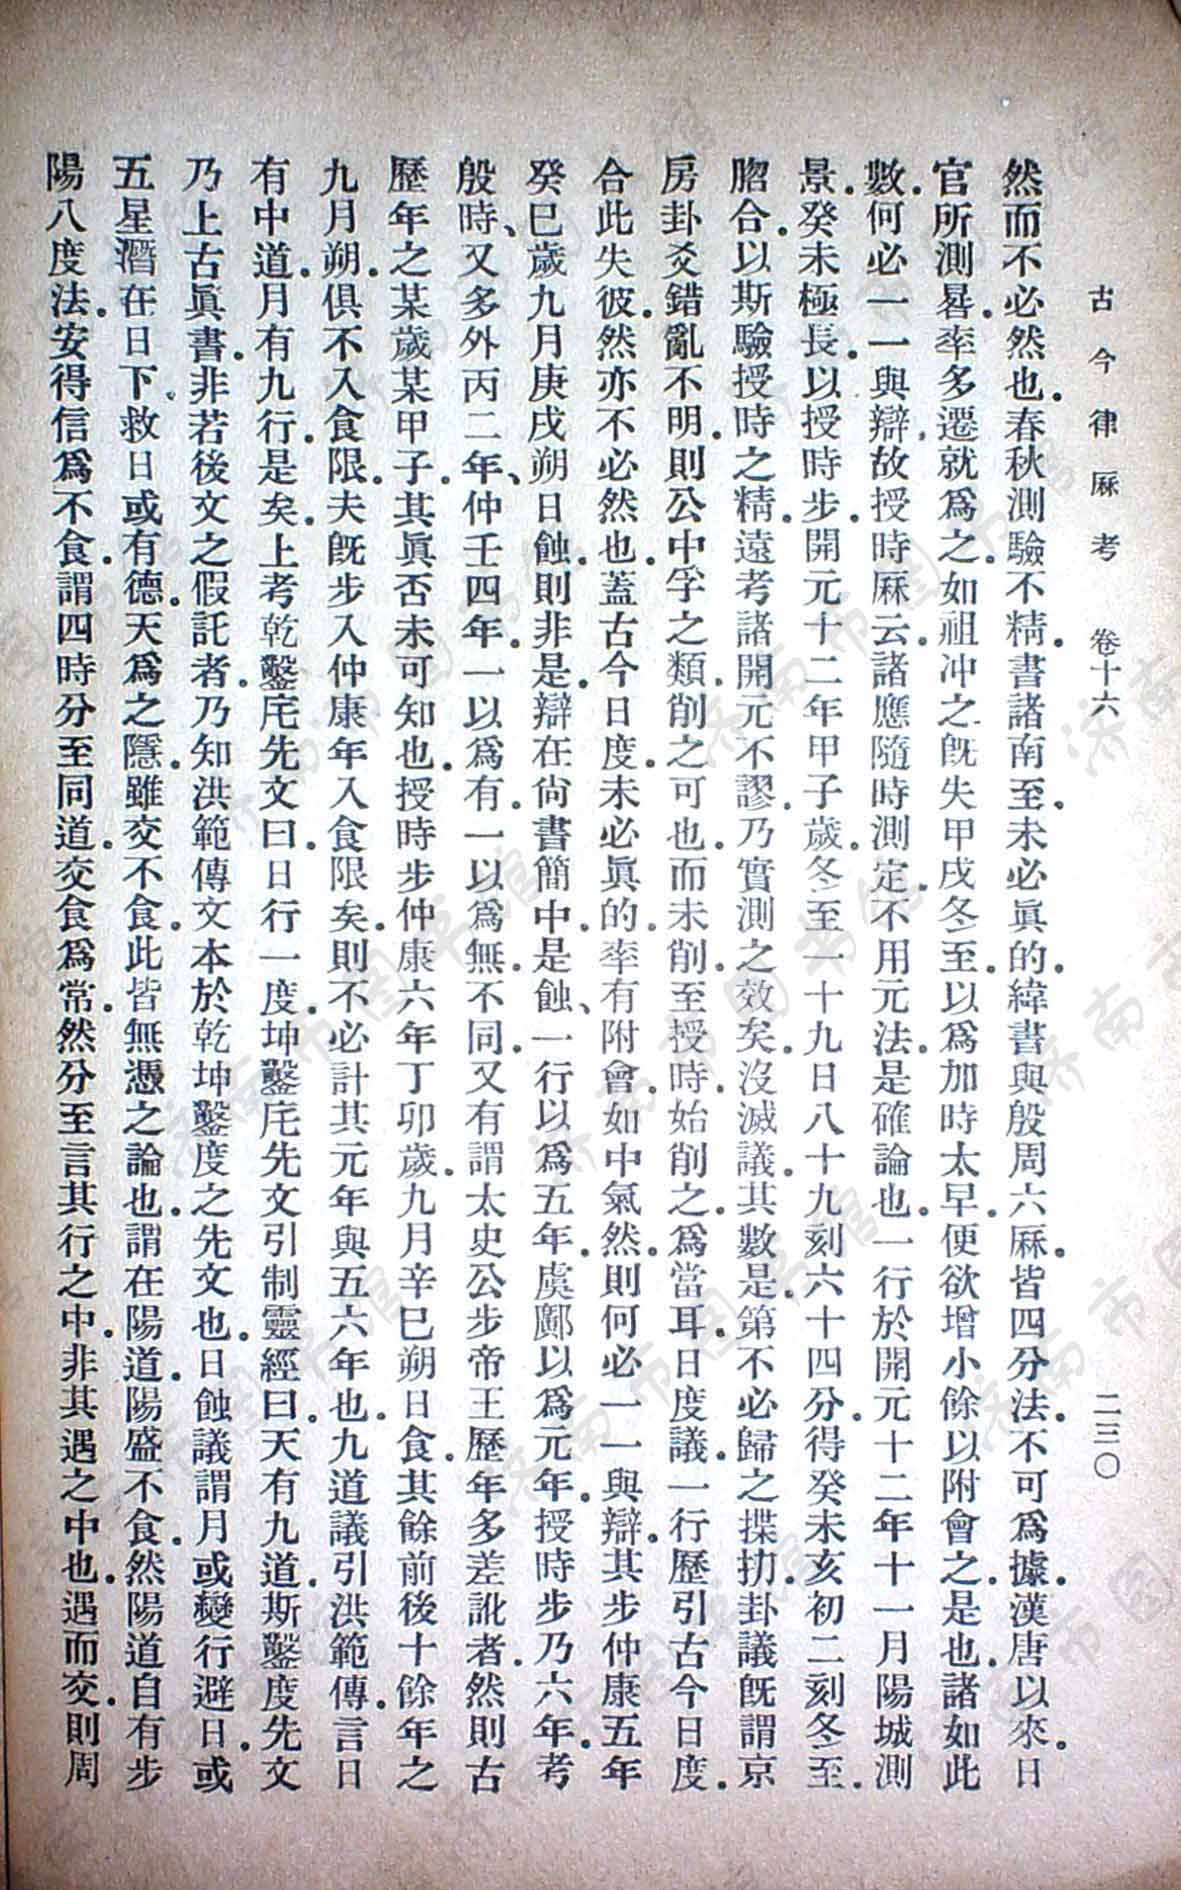 古今律厤考 卷十六 二三〇
然而不必然也。春秋測驗不精。書諸南至。未必眞的。緯書與殷周六厤。皆四分法。不可爲據。漢唐以來。日
官所測晷率多遷就爲之。如祖冲之旣失甲戌冬至。以爲加時太早。便欲增小餘以附會之。是也。諸如此
數。何必一一與辯。故授時厤云。諸應隨時測定。不用元法。是確論也。一行於開元十二年十一月陽城測
景。癸未極長。以授時步。開元十二年甲子歲。冬至一十九日八十九刻六十四分。得癸未亥初二刻冬至。
脗合。以斯驗授時之精。遠考諸開元不謬。乃實測之效矣。沒滅議。其數是第不必歸之揲扐。卦議旣謂京
房卦爻錯亂不明。則公中孚之類。削之可也。而未削。至授時始削之。爲當耳。日度議。一行歷引古今日度。
合此失彼。然亦不必然也。蓋古今日度。未必眞的。率有附會。如中氣然。則何必一一與辯。其步仲康五年
癸巳歲九月庚戌朔日蝕。則非是。辯在尙書簡中。是蝕、一行以爲五年。虞𠠎以爲元年。授時步乃六年。考
殷時、又多外丙二年、仲壬四年。一以爲有。一以爲無。不同。又有謂太史公步帝王歷年多差訛者。然則古
歷年之某歲某甲子。其眞否未可知也。授時步仲康六年丁卯歲。九月辛巳朔日食。其餘前後十餘年之
九月朔。俱不入食限。夫旣步入仲康年入食限矣。則不必計其元年與五六年也。九道議引洪範傳。言日
有中道。月有九行。是矣。上考乾鑿庑先文曰。日行一度。坤鑿庑先文引制靈經曰。天有九道。斯鑿度先文
乃上古眞書。非若後文之假託者。乃知洪範傳文本於乾坤鑿度之先文也。日蝕議謂月或變行避日。或
五星潛在日下。救日或有德。天爲之隱。雖交不食。此皆無憑之論也。謂在陽道。陽盛不食。然陽道自有步
陽八度法。安得信爲不食。謂四時分至同道。交食爲常。然分至言其行之中。非其遇之中也。遇而交。則周